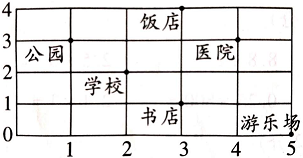 4
饭店
3
公园 医院
2
学校
1
书店 游乐场
0
1 2 3 4 5